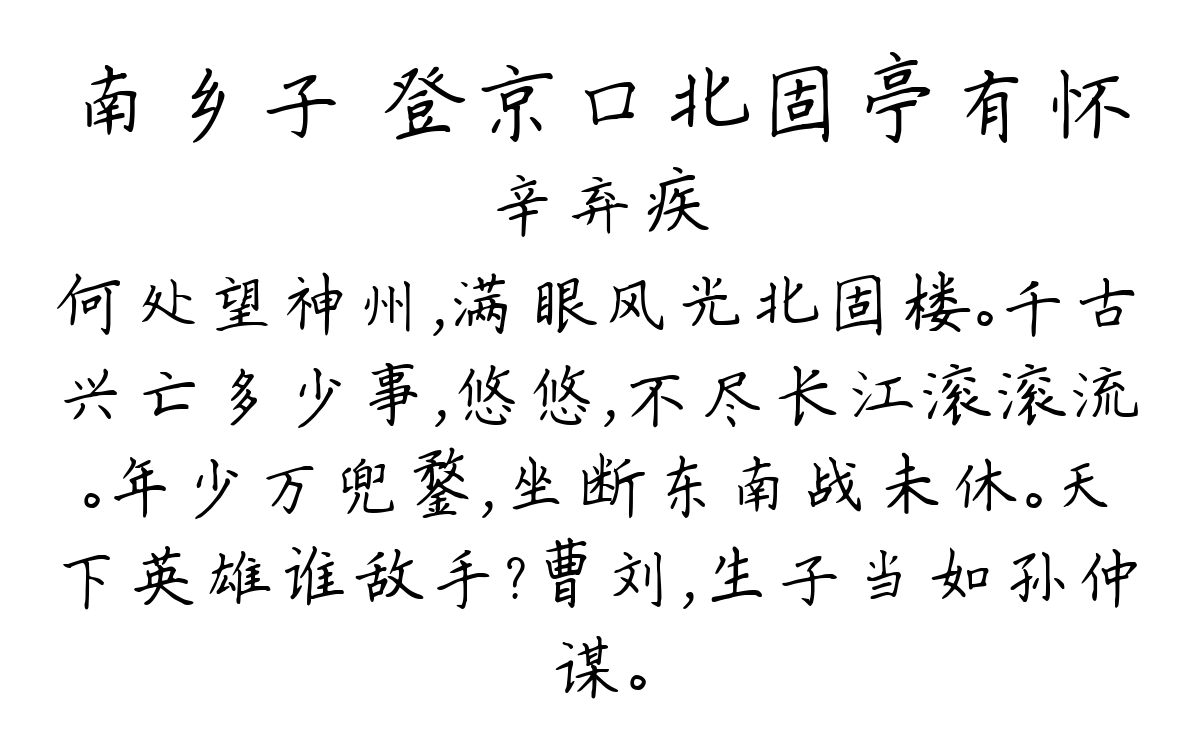 南乡子 登京口北固亭有怀
辛弃疾
何处望神州,满眼风光北固楼。千古
兴亡多少事,悠悠,不尽长江滚滚流
。年少万兜鍪,坐断东南战未休。天
下英雄谁敌手?曹刘,生子当如孙仲
谋。